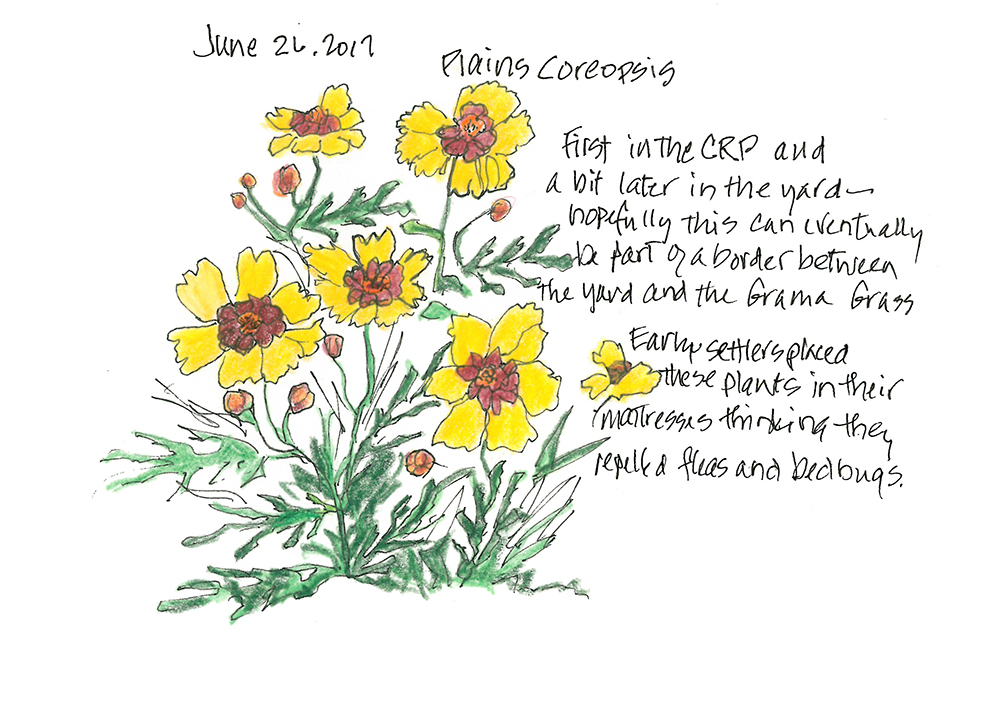 June 26, 2017
Plains Coreopsis
First in the CRP and
a bit later in the yard—
hopefully this can eventually
be part of a border between
the yard and the Grama Grass
Early settlers placed
these plants in their
mattresses thinking they
repelled fleas and bedbugs.